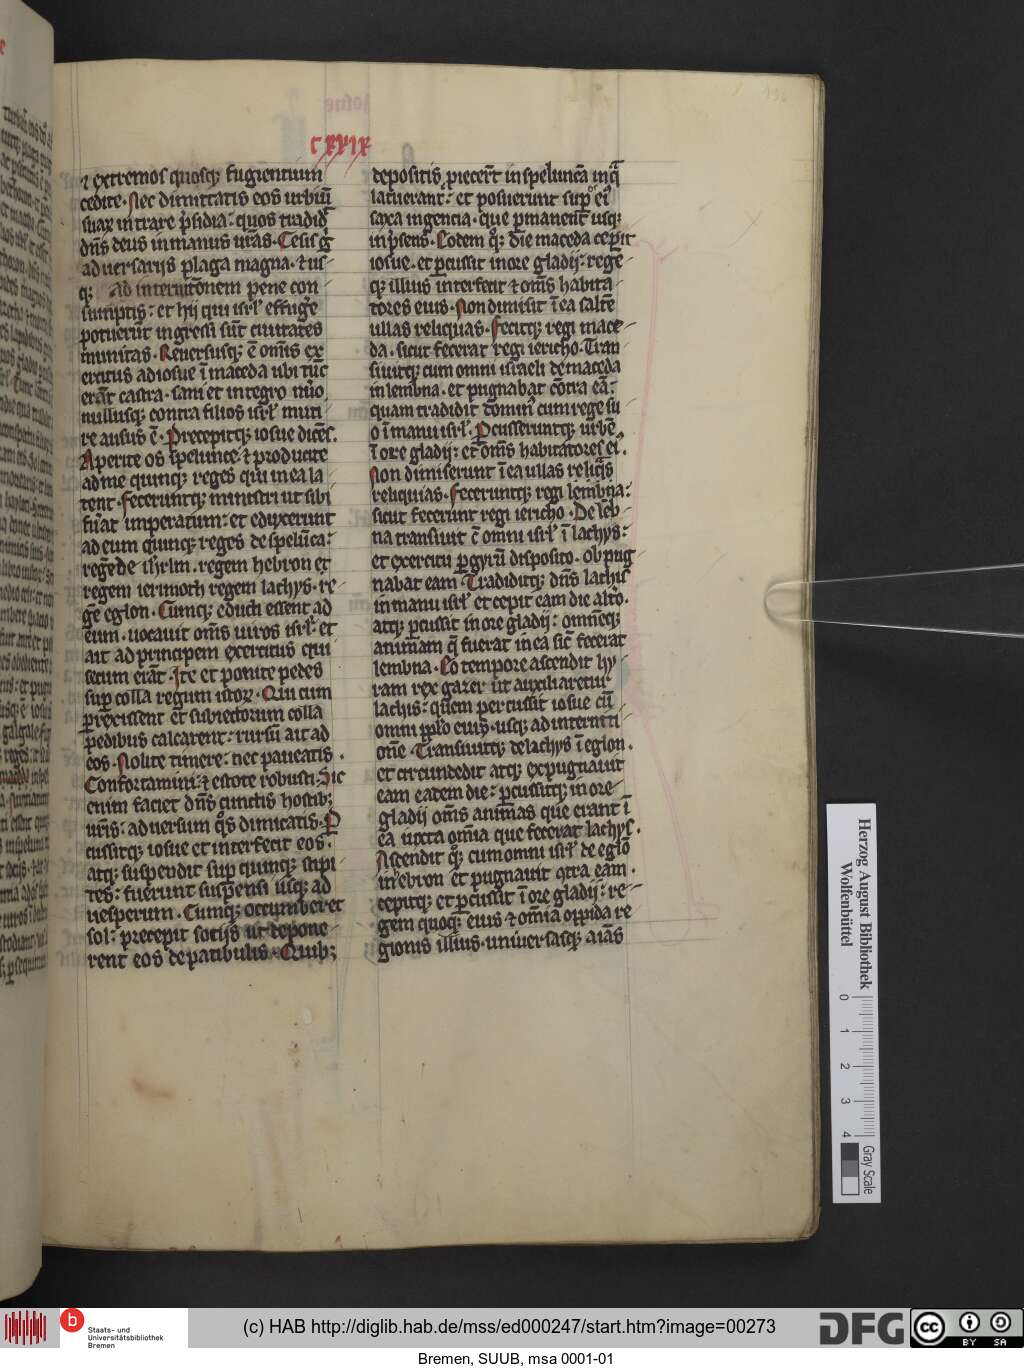 CXXIX
⁊ extremos quosq; fugientium
cedite. Nec dimittatis eos urbiū
suaꝝ intrare p̄sidia: quos tradid᷑
dn̄s deus in manus ur̄as. Cesis g̊
aduersarijs plaga magna. ⁊ us-
q; ad internitōnem pene con-
sumptis: et hij qui isrl̓ effug̓e
potuerūt ingressi sūt ciuitates
munitas. Reuersusq; ē om̄is ex
ercitus ad iosue ī maceda ubi tūc
erāt castra. sani et integro nūo
nullusq; contra filios isrl̓ muti-
re ausus ē. Precepitq; iosue dicēs.
Aperite os spelunce ⁊ producite
ad me quinq; reges qui in ea la
tent. Feceruntq; ministri ut sibi
fu̓at imperatum: et eduxerunt
ad eum quinq; reges de spelūca:
regē de ih̓rlm. regem hebron et
regem ierimoth regem lachys. re-
gē eglon. Cumq; educti essent ad
eum. uocauit om̄s uiros isrl̓ et
ait ad principem exercitus qui
secum erāt. Ite et ponite pedes
sup colla regum istoꝝ. Qui cum
perrexissent et subiectorum colla
pedibus calcarent: rursū ait ad
eos. Nolite timere: nec paueatis.
Confortamini: ⁊ estote robusti. Sic
enim faciet dn̄s cunctis hostib;
ur̄is: aduersum q̊s dimicatis. P̱
cussitq; iosue et interfecit eos.
atq; suspendit sup quinq; stipi-
tes: fuerunt suspensi usq; ad
uesperum. Cumq; occumberet
sol: precepit socijs ut depone-
rent eos de patibulis. Quib;
depositis piecer̄t in speluncā in q̄
latuerant: et posuerunt sup os ei᷒
saxa ingencia. que pmanent usq;
in p̄sens. Eodem q̊q; die maceda cepit
iosue. et pcussit in ore gladij: regē-
q; illius interfecit ⁊ om̄s habita-
tores eius. Non dimisit ī ea saltē
ullas reliquas. Fecitq; regi mace-
da. sicut fecerat regi iericho. Tran
siuitq; cum omni israeli de maceda
in lembna. et pugnabat cōtra eā:
quam tradidit domin᷒ cum rege su
o ī manu isrl̓. Pcusseruntq; urbē
ī ore gladij: et om̄s habitatores ei᷒.
Non dimiserunt ī ea ullas reliq̓s
reliquias. Feceruntq; regi lembna:
sicut fecerunt regi iericho. De lēb-
na transiuit ē omni isrl̓ ī lachys:
et exercitu p gyrū disposito. obpug-
nabat eam. Tradiditq; dn̄s lachis
in manu isrl̓ et cepit eam die alt̓o.
atq; pcussit in ore gladij: omnēq;
animam q̄ fuerat in ea sic̄ fecerat
lembna. Eo tempore ascendit hy-
ram rex gazer ut auxiliaretur
lachis: quem percussit iosue cū
omni pp̱lo eius. usq; ad interniti-
onē. Transiuitq; de lachys ī eglon.
et circundedit atq; expugnauit
eam eatem die: pcussitq; in ore
gladij om̄s animas que erant ī
ea iuxta om̄ia que fecerat lachys.
Ascendit q̊q; cum omni isrl̓ de eglō
in ebron et pugnauit ꝯtra eam.
cepitq; et pcussit ī ore gladij: re-
gem quoq; eius ⁊ om̄ia oppida re
gionis illius. uniuersasq; aīas
Herzog August Bibliothek
Wolfenbüttel
0 1 2 3 4
Gray Scale
b Staats- und
Universitätsbibliothek
Bremen
(c) HAB http://diglib.hab.de/mss/ed000247/start.htm?image=00273
DFG
cc BY SA
Bremen, SUUB, msa 0001-01